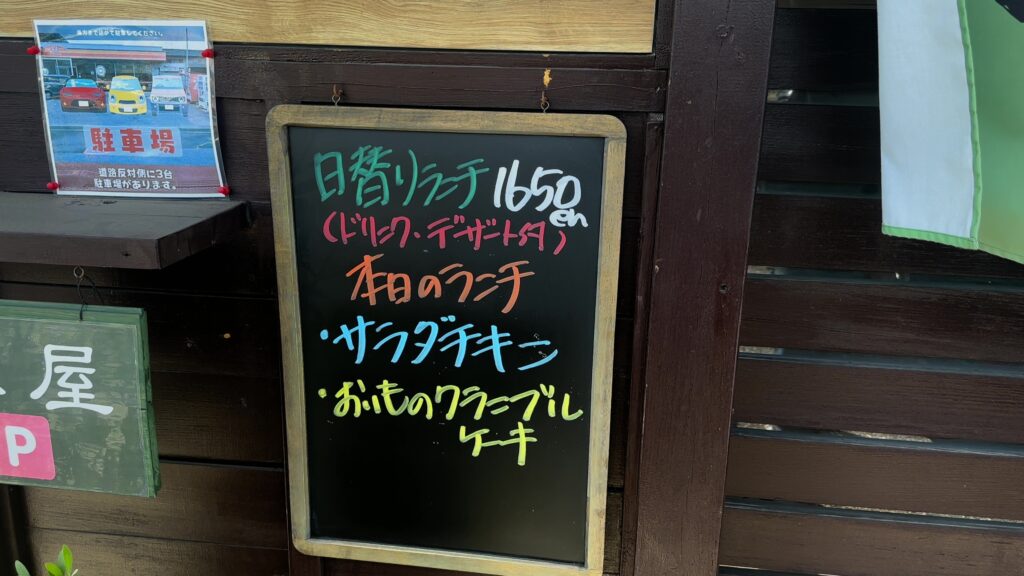 後方まで詰めて駐車してください。
駐車場
道路反対側に3台
駐車場があります。
屋
P
日替りランチ 1650
en
(ドリンク・デザート付)
本日のランチ
・サラダチキン
・おいものクランブル
ケーキ